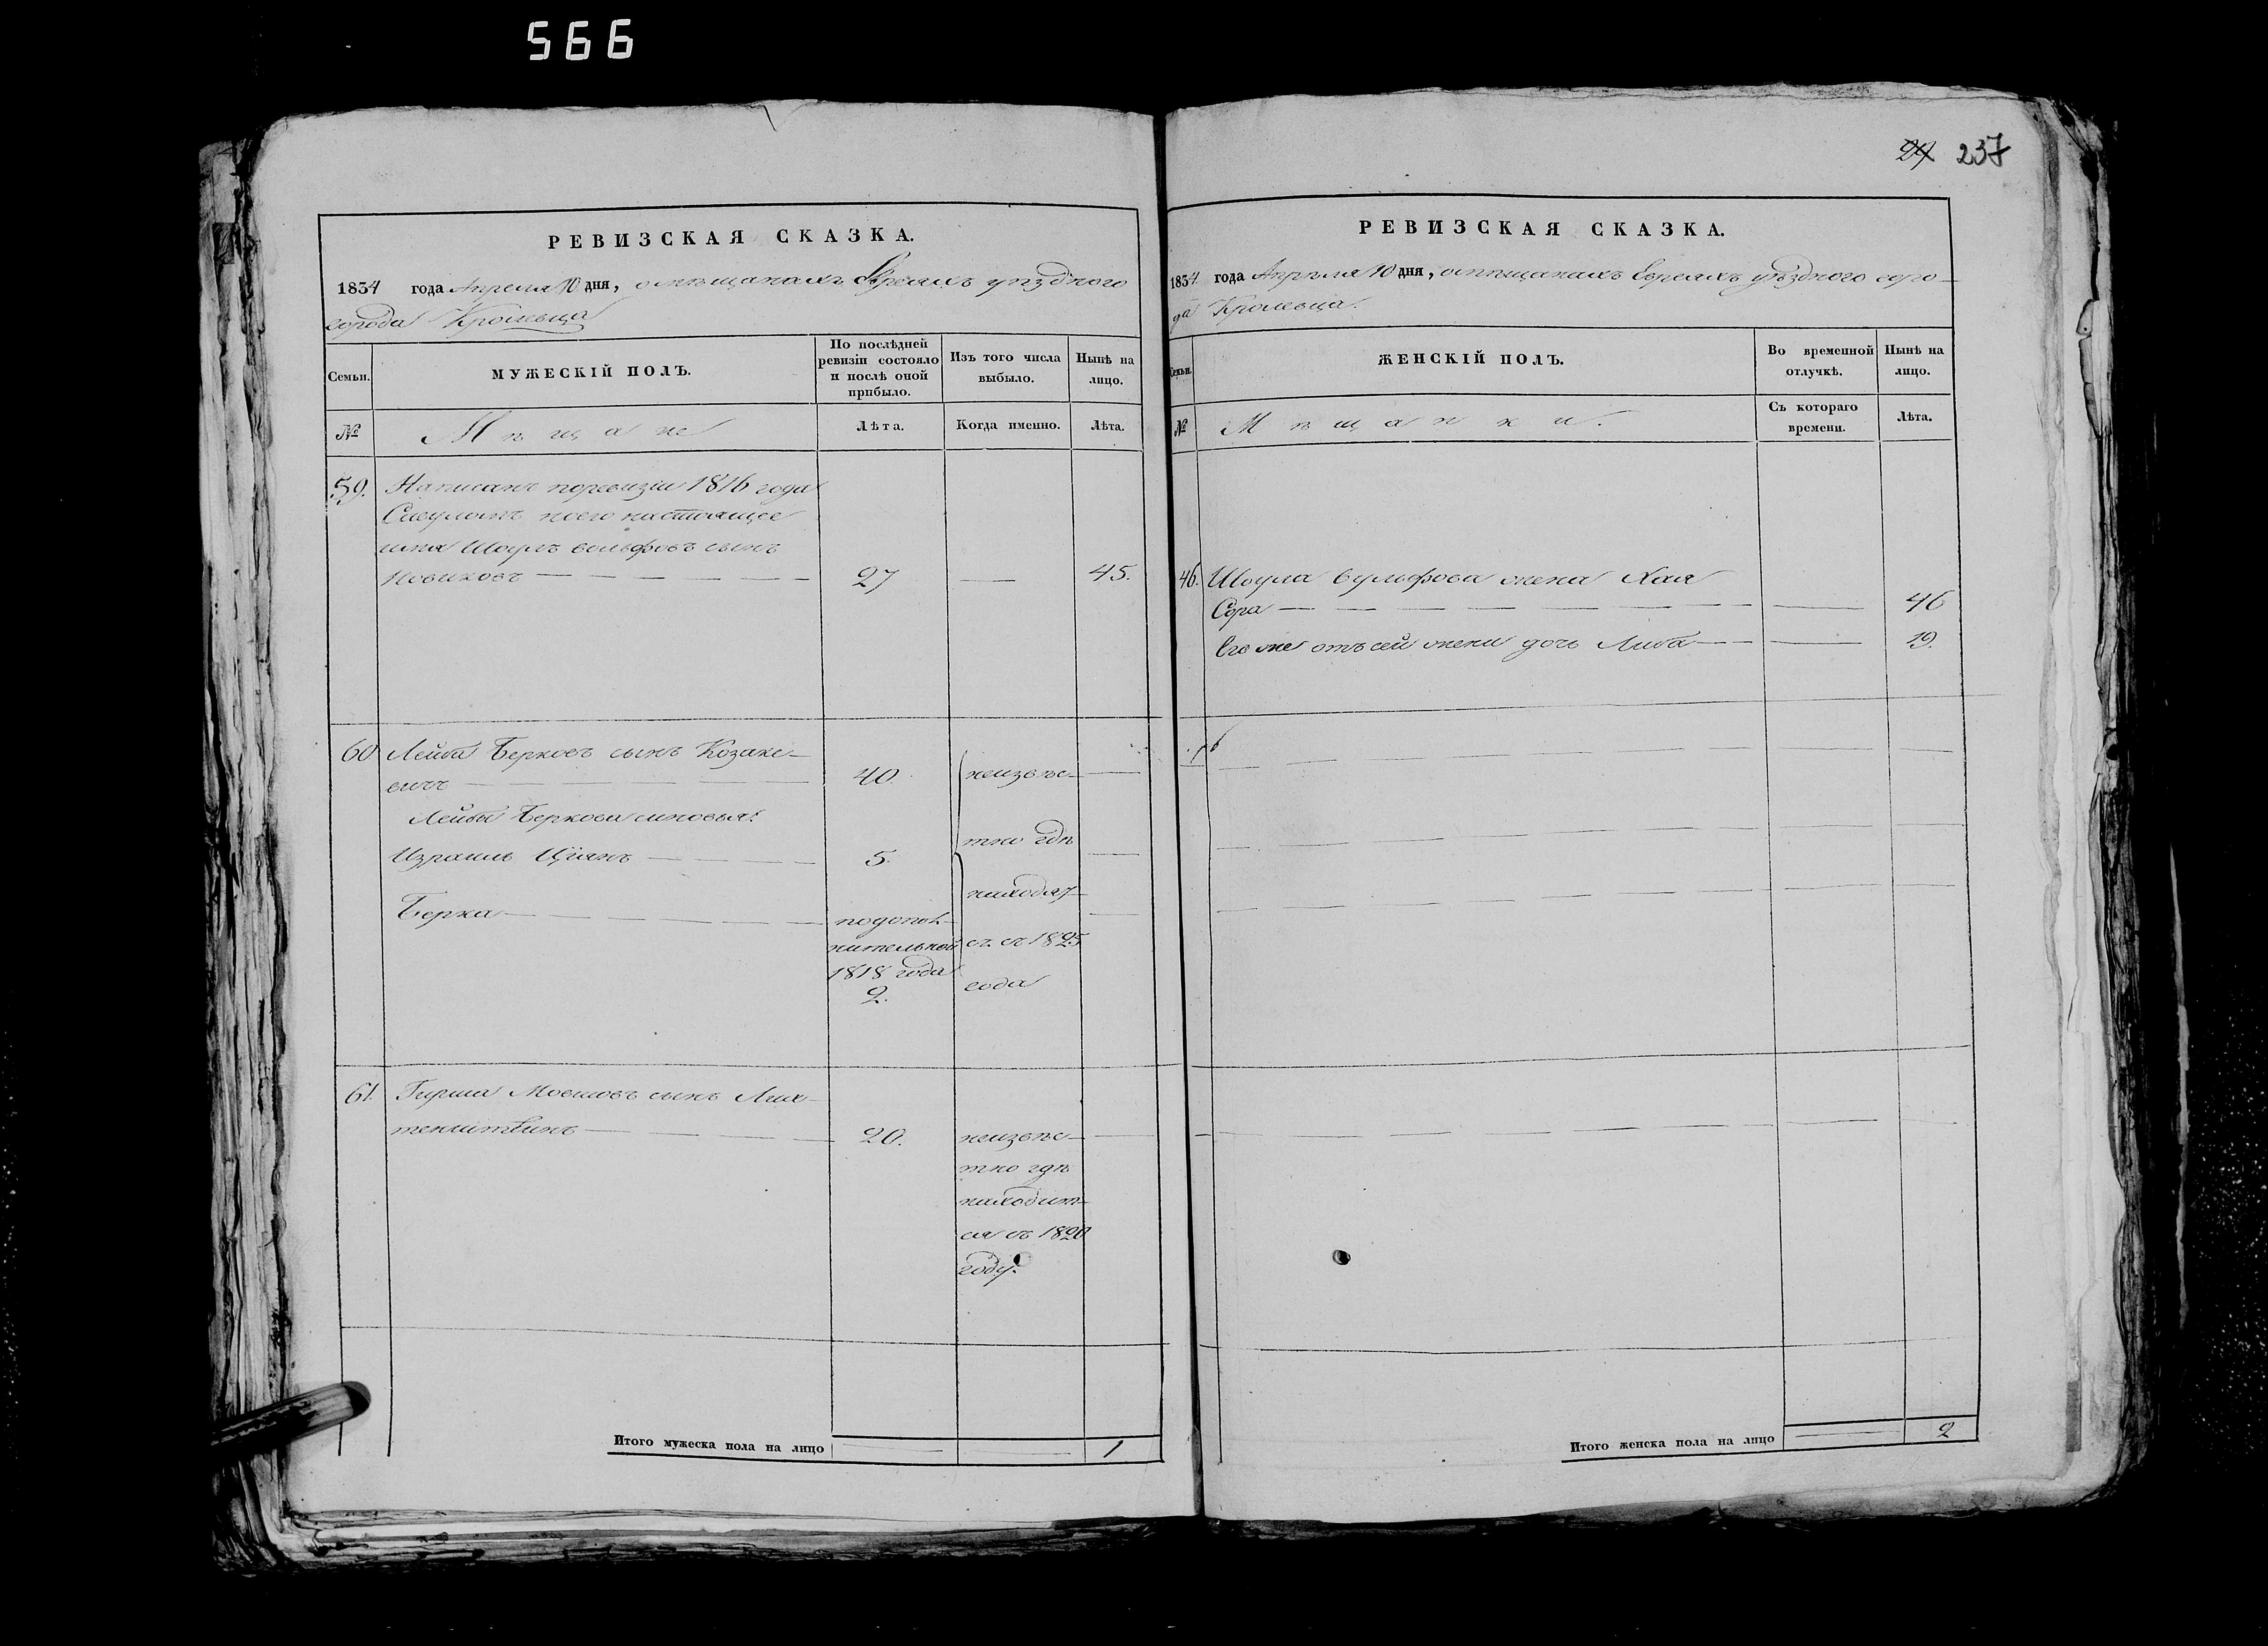 566
29 237
РЕВИЗСКАЯ СКАЗКА.
1834 года Апреля 10 дня, о мѣщанахъ Евреяхъ уѣзднаго
города Кролевца
Семьи.
МУЖЕСКІЙ ПОЛЪ.
По послѣдней
ревизіи состояло
и послѣ оной
прибыло.
Изъ того числа
выбыло.
Нынѣ на
лицо.
№
Мѣщане
Лѣта.
Когда именно.
Лѣта.
59. Написанъ поревизіи 1816 года
настоящее
имя Шоулъ вольфовъ сынъ
Новиковъ — 27 — 45.
60 Лейба Берковъ сынъ Козаке-
вичъ — 40. неизвѣс- —
Лейбы Беркова сыновья:
тно гдѣ
Израиль — 5. —
находят-
Берка — подопол- —
нительной ся съ 1825
1818 года
2. года
61. Гирша Мовшовъ сынъ Лих-
тенштеинъ — 20. неизвѣс- —
тно гдѣ
находит-
ся съ 1820
году.
Итого мужеска пола на лицо — — 1
РЕВИЗСКАЯ СКАЗКА.
1834 года Апрѣля 10 дня, о мѣщанахъ Евреяхъ уѣзднаго горо-
да Кролевца.
Семьи.
ЖЕНСКІЙ ПОЛЪ.
Во временной
отлучкѣ.
Нынѣ на
лицо.
№
Мѣщанки.
Съ котораго
времени.
Лѣта.
46. Шоула вульфова жена Хая
Сора — — 46
Его же отъ сей жени дочь Либа — — 19.
Итого женска пола на лицо — 2